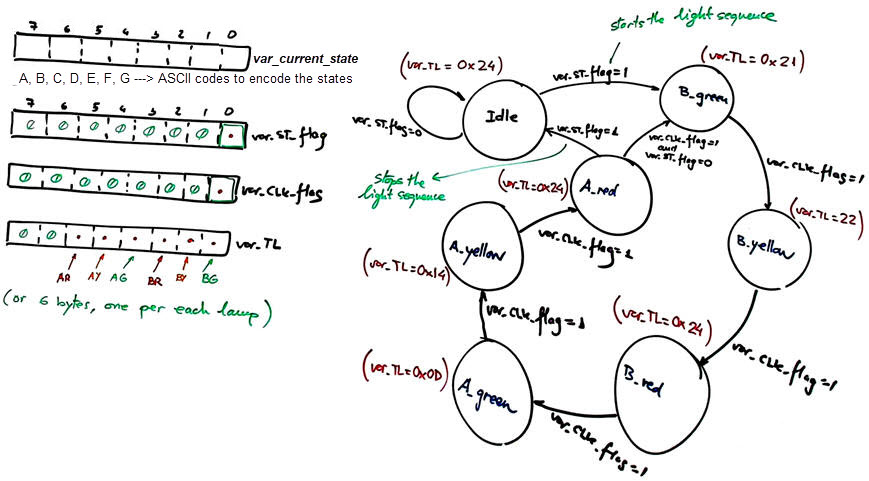 7 6 5 4 3 2 1 0
var_current_state
A, B, C, D, E, F, G ---> ASCII codes to encode the states
7 6 5 4 3 2 1 0
∅ ∅ ∅ ∅ ∅ ∅ ∅ •
var_ST_flag
∅ ∅ ∅ ∅ ∅ ∅ ∅ •
var_CLK_flag
∅ ∅ • • • • • •
var_TL
AR AY AG BR BY BG
(or 6 bytes, one per each lamp)
starts the light sequence
(var_TL = 0x24)
var_ST_flag=1
(var_TL = 0x21)
Idle
B_green
var_ST_flag=0
var_ST_flag=1
var_CLK_flag=1
and
var_ST_flag=0
stops the
light sequence
(var_TL=0x24)
A_red
var_CLK_flag=1
(var_TL=22)
A_yellow
var_CLK_flag=1
B_yellow
(var_TL=0x14)
var_CLK_flag=1
(var_TL=0x24)
var_CLK_flag=1
(var_TL=0x0D)
A_green
B_red
var_CLK_flag=1